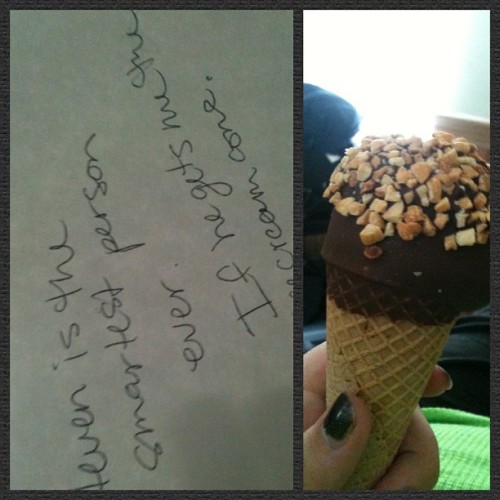 teven is the
smartest person
ever.
If he gets me the
ecream cone.